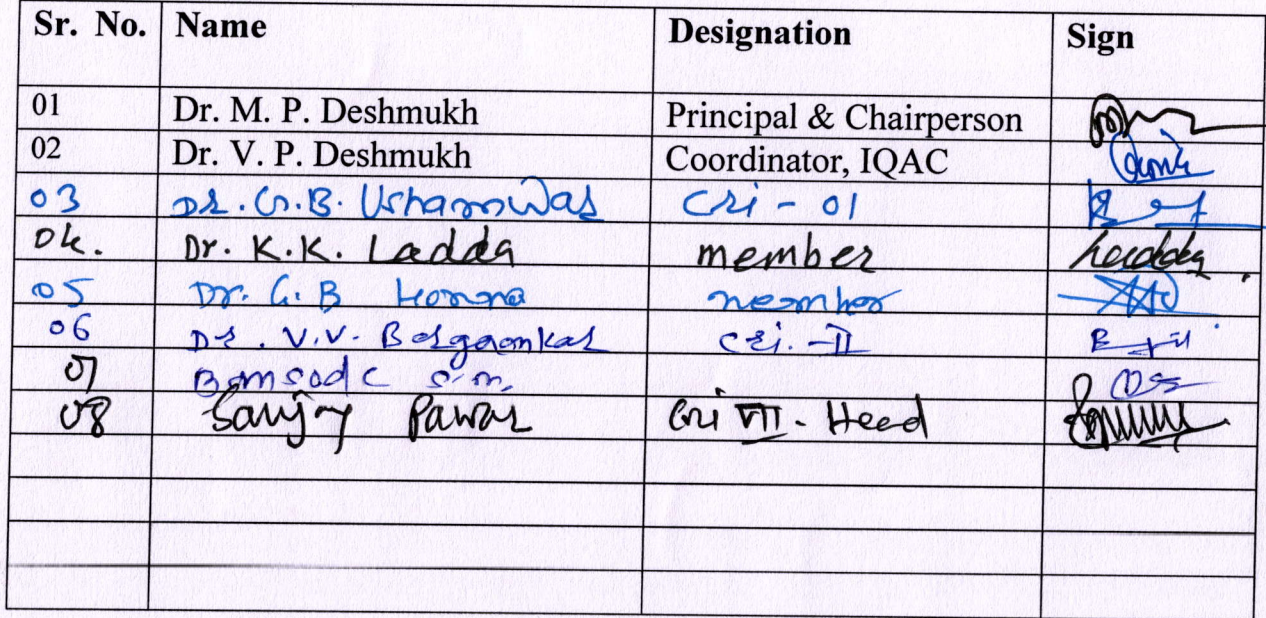 Sr. No. Name Designation Sign
01 Dr. M. P. Deshmukh Principal & Chairperson
02 Dr. V. P. Deshmukh Coordinator, IQAC
03 Dr. G.B. Cri - 01
04. Dr. K.K. Ladda member Ladda
05 Dr. G.B member
06 Dr. V.V. Borgaonkar Cri. - II
07 Bansode S.M.
08 Sanjay Pawar Cri VII - Head